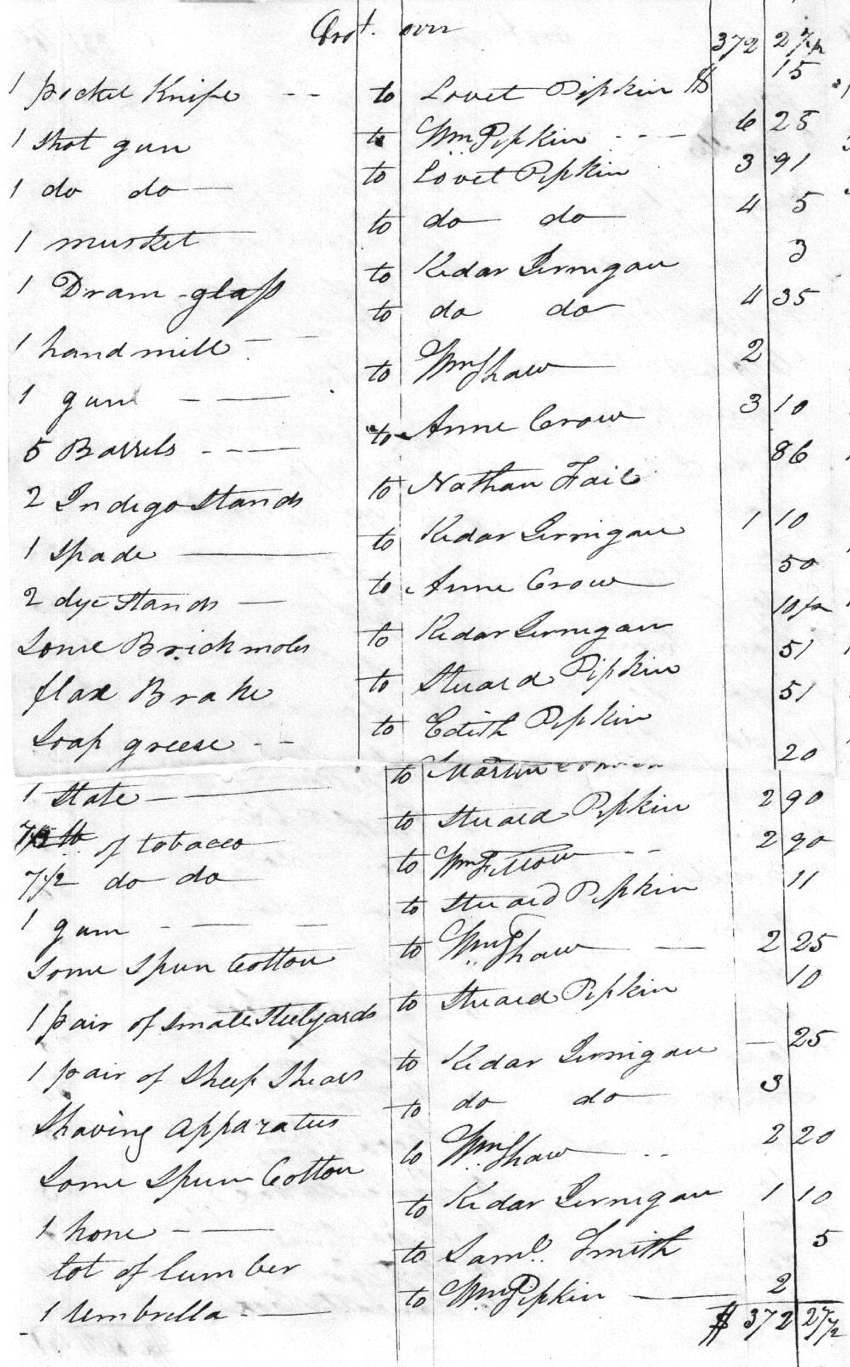 Brot. over 372 27 1/2
1 pocket Knife -- to Lovet Pipkin $ 15
1 Shot gun to Wm Pipkin --- 6 25
1 do do to Lovet Pipkin 3 91
1 musket to do do 4 5
1 Dram-glass to Kedar Jernigan 3
1 hand mill to do do 4 35
1 gum -- to Wm Shaw 2
5 Barrels --- to Anne Crow 3 10
2 Indigo Stands to Nathan Fail 86
1 Spade to Kedar Jernigan 1 10
2 dye Stands to Anne Crow 50
Some Brick moles to Kedar Jernigan 10 1/2
flax Brake to Steuard Pipkin 51
Soap greese -- to Edith Pipkin 51
1 Slate to Martin 20
of tobacco to Steuard Pipkin 2 90
7 1/2 do do to Wm 2 90
1 gum to Steuard Pipkin 11
Some Spun Cotton to Wm Shaw 2 25
1 pair of Small Steelyards to Steuard Pipkin 10
1 pair of Sheep Shears to Kedar Jernigan 25
Shaving apparatus to do do 3
Some Spun Cotton to Wm Shaw 2 20
1 hone -- to Kedar Jernigan 1 10
lot of lumber to Saml. Smith 5
1 Umbrella to Wm Pipkin 2
$ 372 27 1/2